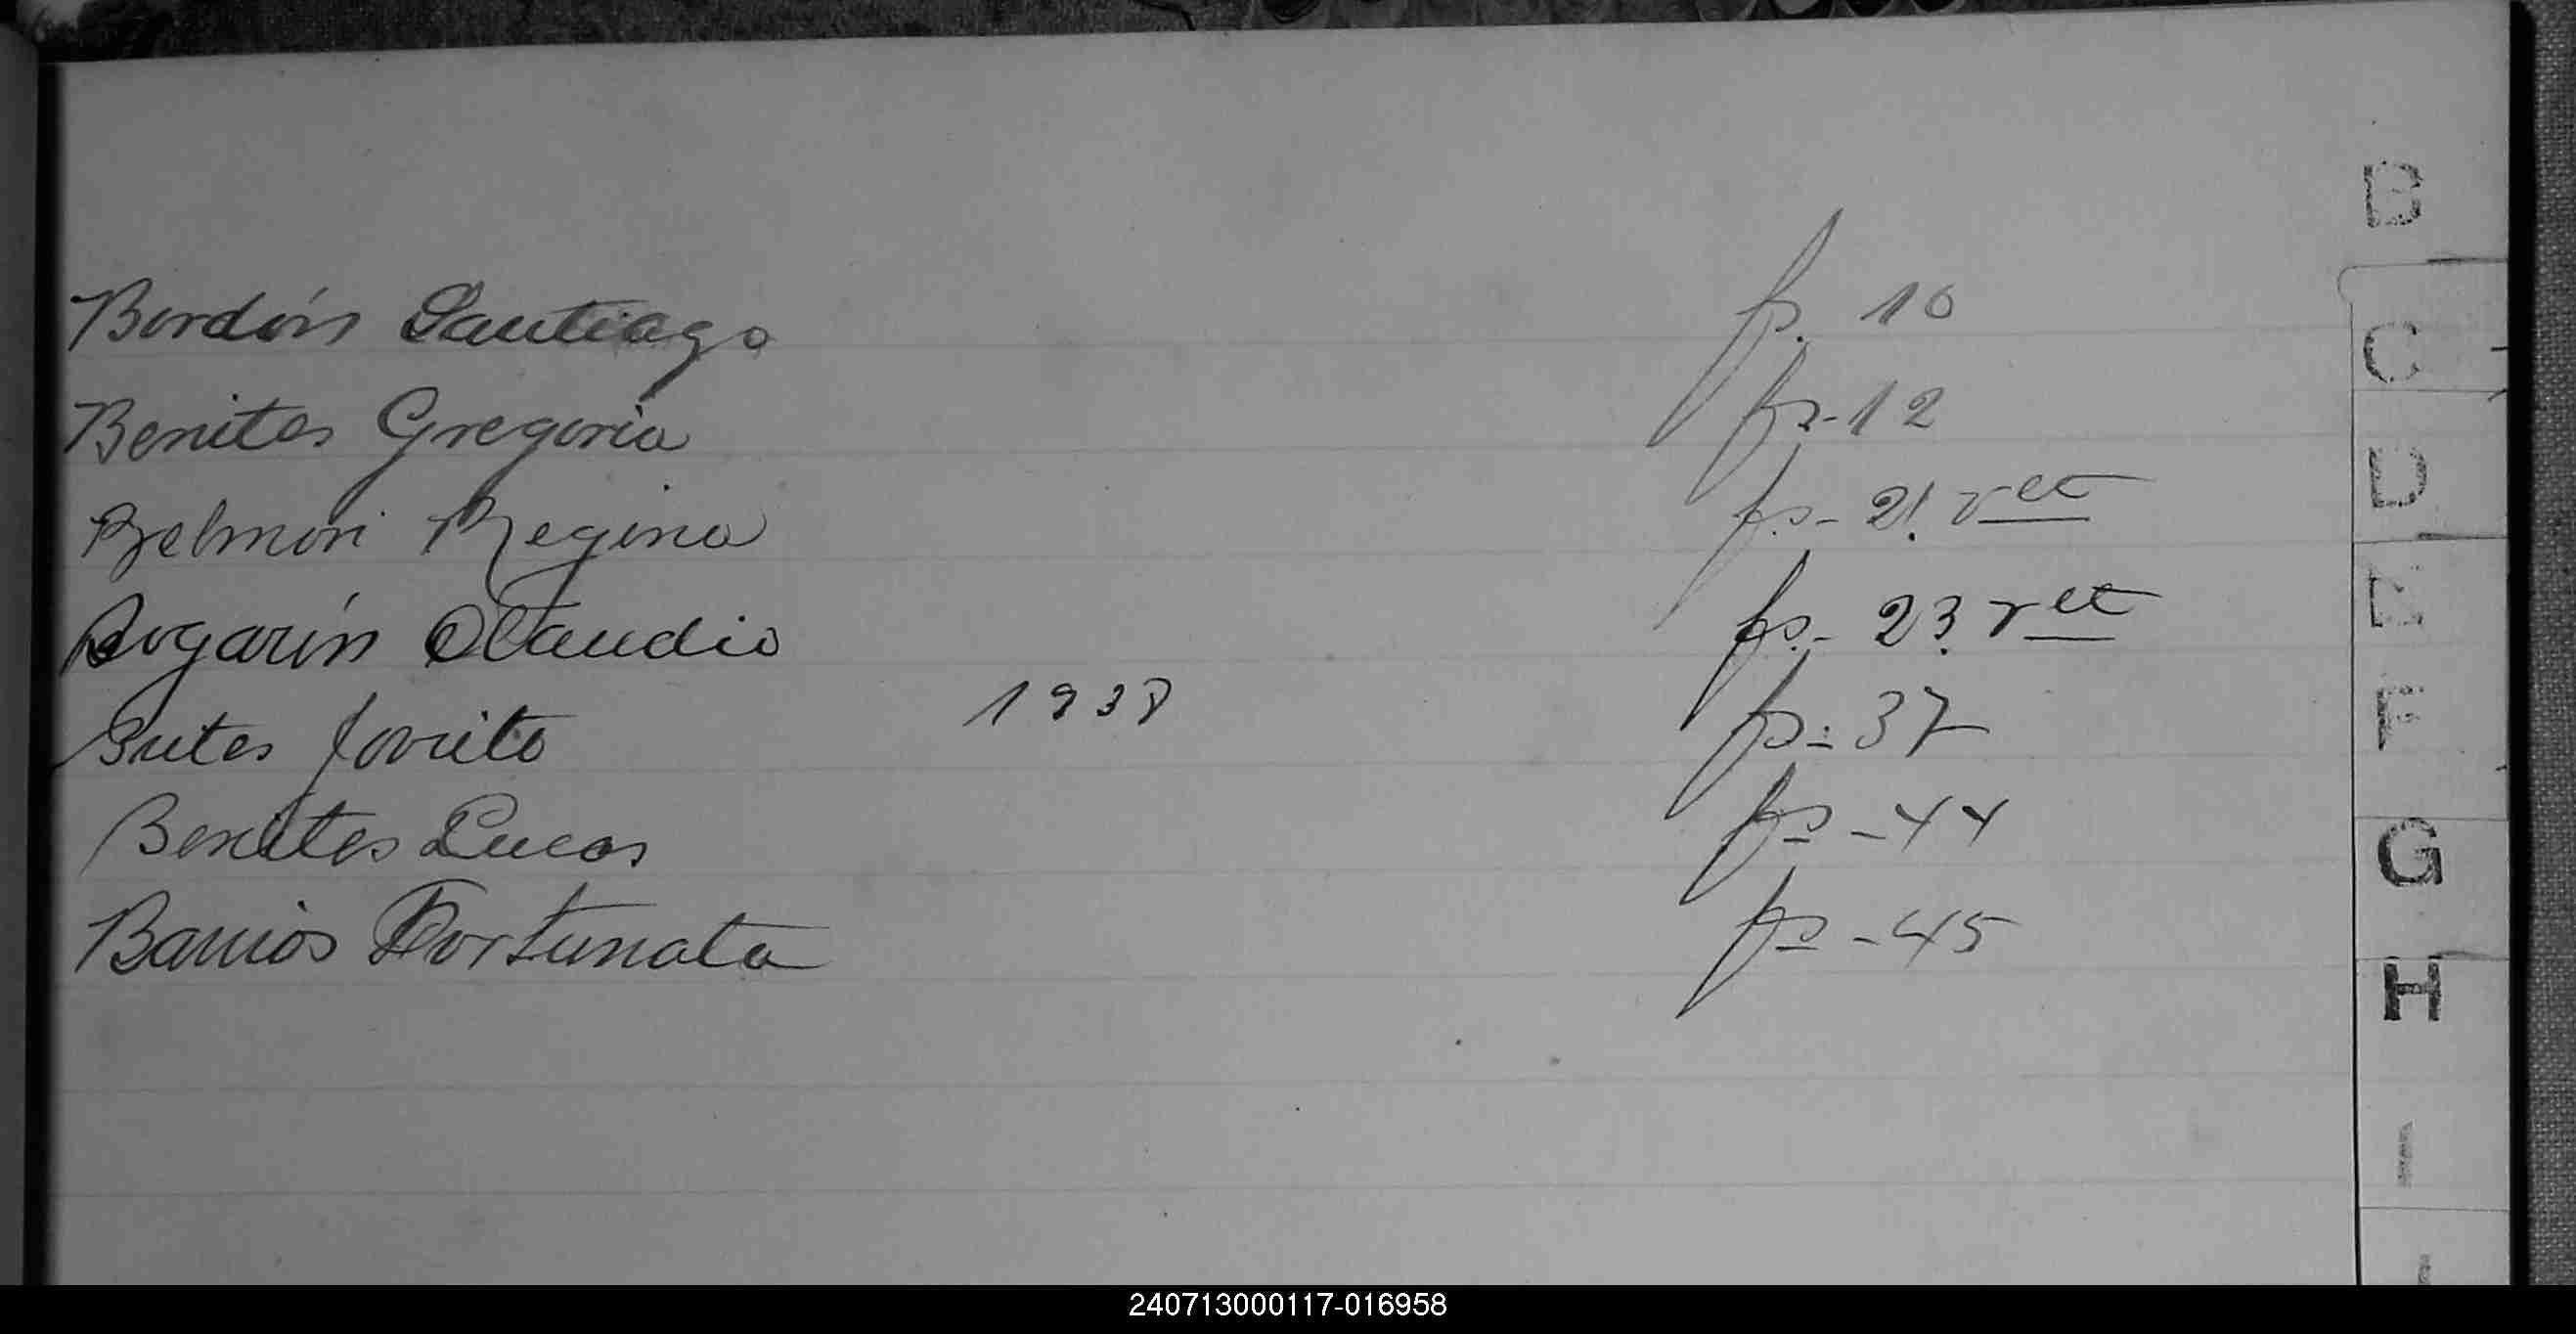 Bordón Santiago fs. 10
Benites Gregoria fs-12
Belmon Regina fs- 21 vta
Bogarín Claudio fs- 23 vta
1938
fs- 37
Benites Lucas fs-44
Barrios Fortunata fs-45
B
C
D
E
F
G
H
I
240713000117-016958